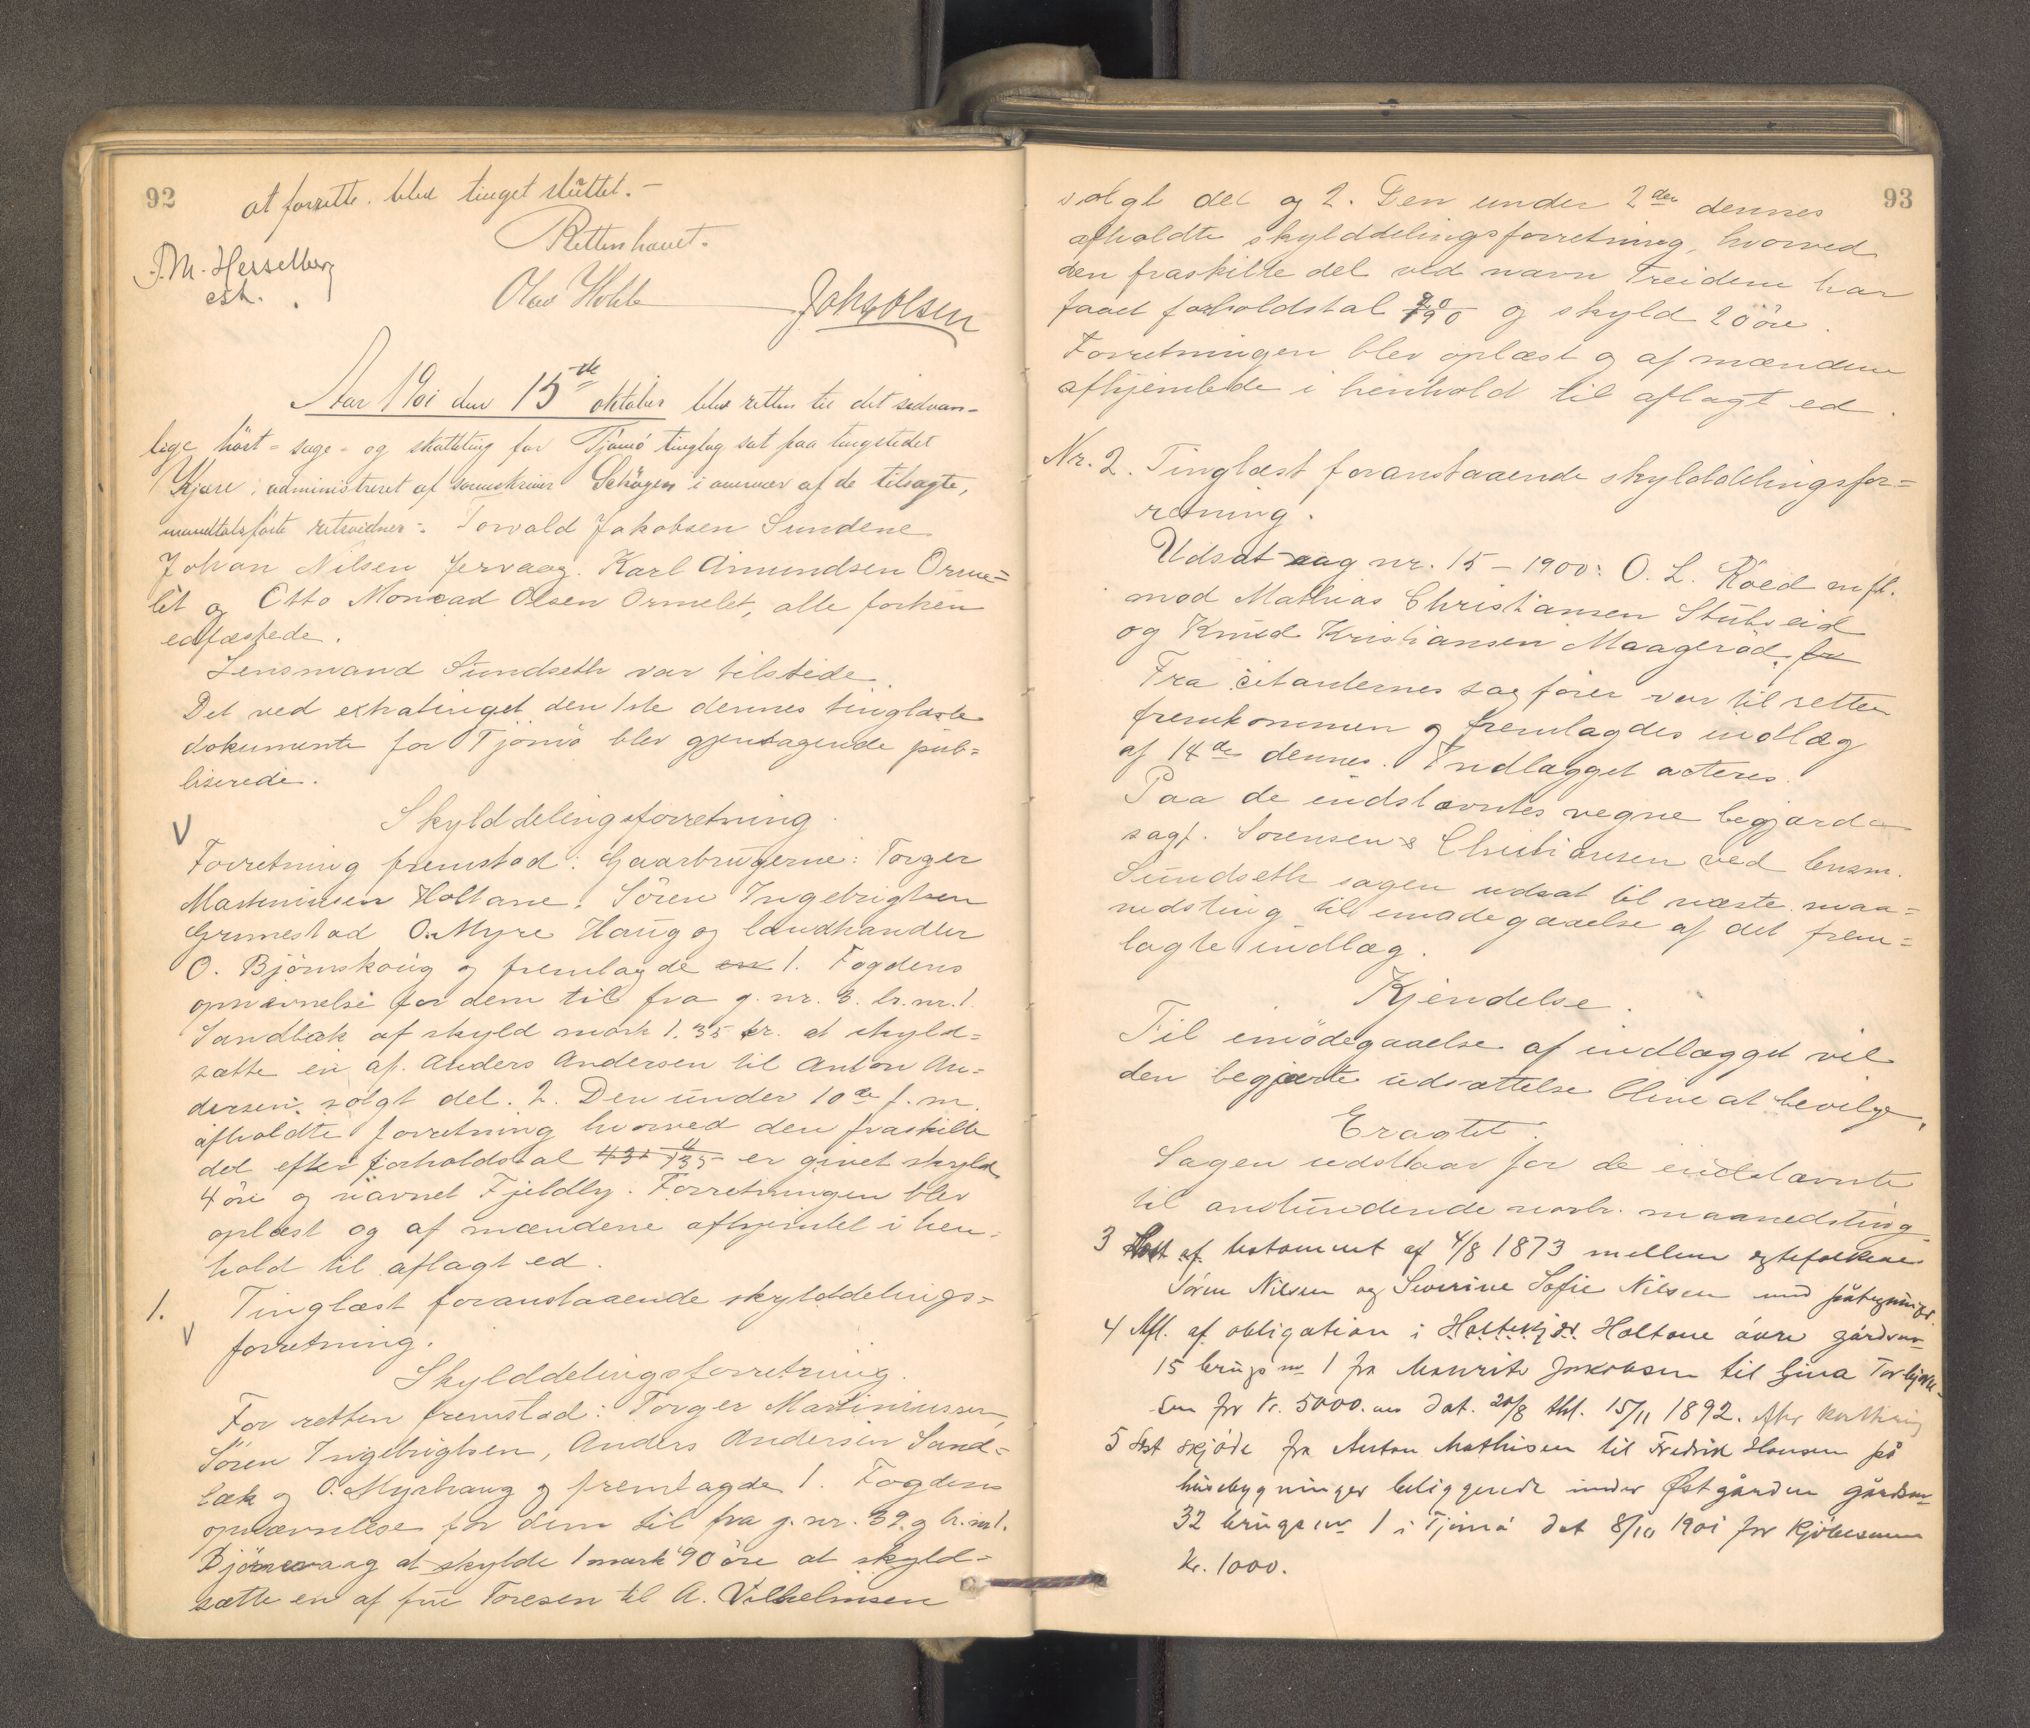 92
at forrette. blev tinget sluttet.-
Retten hævet.
J. M. Hesselberg
cst.
Olav Holt
Johs Olsen
Aar 1901 den 15de oktober blev retten til det sedvan-
lige höst- sage- og skatteting for Tjömö tinglag sat paa tingstedet
Kjære, administreret af sorenskriver Schögen i overvær af de tilsagte,
mandtalsførte retsvidner: Torvald Jakobsen Sundene
Johan Nilsen Jervaag. Karl Amundsen Orme=
let og Otto Monrad Olsen Ormelet, alle forhen
edfæstede.
Lensmand Sundseth var tilstede.
Det ved extratinget den 1ste dennes tinglæste
dokumente for Tjömö blev gjentagende pub=
liserede.
Skylddelingsforretning.
V
Forretning fremstod: Gaarbrugerne: Torger
Martinusen Holtane. Sören Ingebrigtsen
Grimestad O. Myre Haug og landhandler
O. Bjömskoug og fremlagde en 1. Fogdens
opnævnelse for dem til fra g. nr. 3. br. nr. 1.
Sandbæk af skyld mark 1.35 kr. at skyld=
sætte en af. Anders Andersen til Anton An=
dersen solgt del. 2. Den under 10de f. m.
afholdte forretning hvorved den fraskilte
del efter forholdstal 4/135 er givet skyld
4 öre og navnet Fjeldly. Forretningen blev
oplæst og af mændene afhjemlet i hen=
hold til aflagt ed.
1. Tinglæst foranstaaende skylddelings=
V
forretning.
Skylddelingsforretning.
For retten fremstod: Torger Martiniussen,
Sören Ingebrigtsen, Anders Andersen Sand=
bæk og O. Myrhaug og fremlagde 1. Fogdens
opnævnelse for dem til fra g. nr. 39. g br. nr 1.
Björnevaag at skylde 1 mark 90 öre at skyld=
sætte en af frue Toresen til A. Vilhelmsen
93
solgt del og 2. Den under 2den dennes
afholdte skylddelingsforretning, hvorved
den fraskilte del ved navn Treidene har
faaet forholdstal 20/190 og skyld 20 öre.
Forretningen blev oplæst og af mændene
afhjemlede i henhold til aflagt ed.
Nr. 2. Tinglæst foranstaaende skylddelingsfor=
retning.
Udsat sag nr. 15 - 1900: O. L. Röed mfl.
mod Mathias Christiansen Stubseid
og Knud Kristiansen Maageröd. for
Fra citanternes sagförer var til retten
fremkommen og fremlagdes indlæg
af 14de dennes. Indlægget acteres.
Paa de indstævntes vegne begjærde
sagf. Sorensen & Christiansen ved lensm.
Sundseth sagen udsat til næste maa=
nedsting til imödegaaelse af det frem=
lagte indlæg.
Kjendelse.
Til imödegaaelse af indlægget vil
den begjærte udsættelse blive at bevilge.
Eragtet:
Sagen udstaar for de indstævnte
til anstundende novbr. maanedsting.
3 Læst af. testament af 4/8 1873 mellem egtefolkene
Sören Nilsen og Severine Sofie Nilsen med påtegninger.
4 Afl. af obligation i Holtekjær Holtane övre gårdsnr
15 brugs nr 1 fra Mauritz Jakobsen til Gina Torbjörn-
sen for Kr. 5000.oo dat. 20/8 thl. 15/11 1892. efter kvittering
5 Læst skjöde fra Anton Mathisen til Fredrik Hansen på
husebygninger beliggende under Østgården gårdsnr
32 brugs nr 1 i Tjömö dat 8/10 1901 for kjöbesum
Kr. 1000.